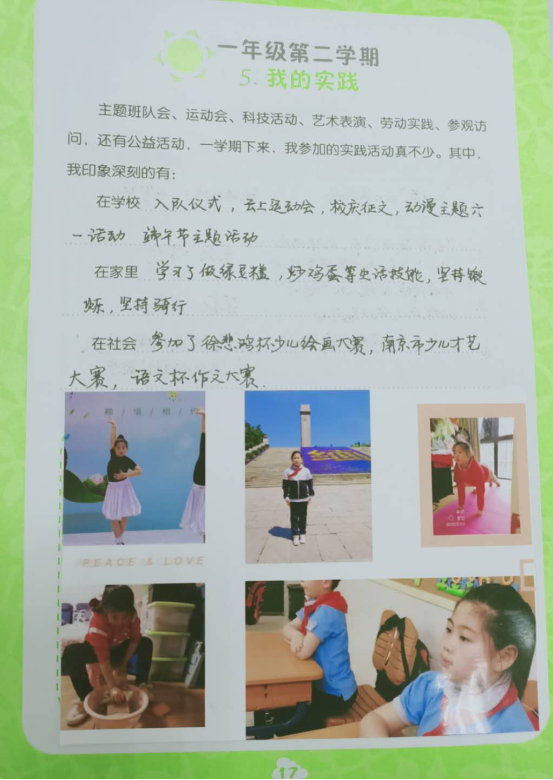 一年级第二学期
5. 我的实践
主题班队会、运动会、科技活动、艺术表演、劳动实践、参观访
问，还有公益活动，一学期下来，我参加的实践活动真不少。其中，
我印象深刻的有：
在学校 入队仪式，云上运动会，校庆征文，动漫主题六
一活动 端午节主题活动
在家里 学习了做绿豆糕，炒鸡蛋等生活技能，坚持锻
炼，坚持骑行
在社会 参加了徐悲鸿杯少儿绘画大赛，南京市少儿才艺
大赛，语文杯作文大赛.
PEACE & LOVE
17